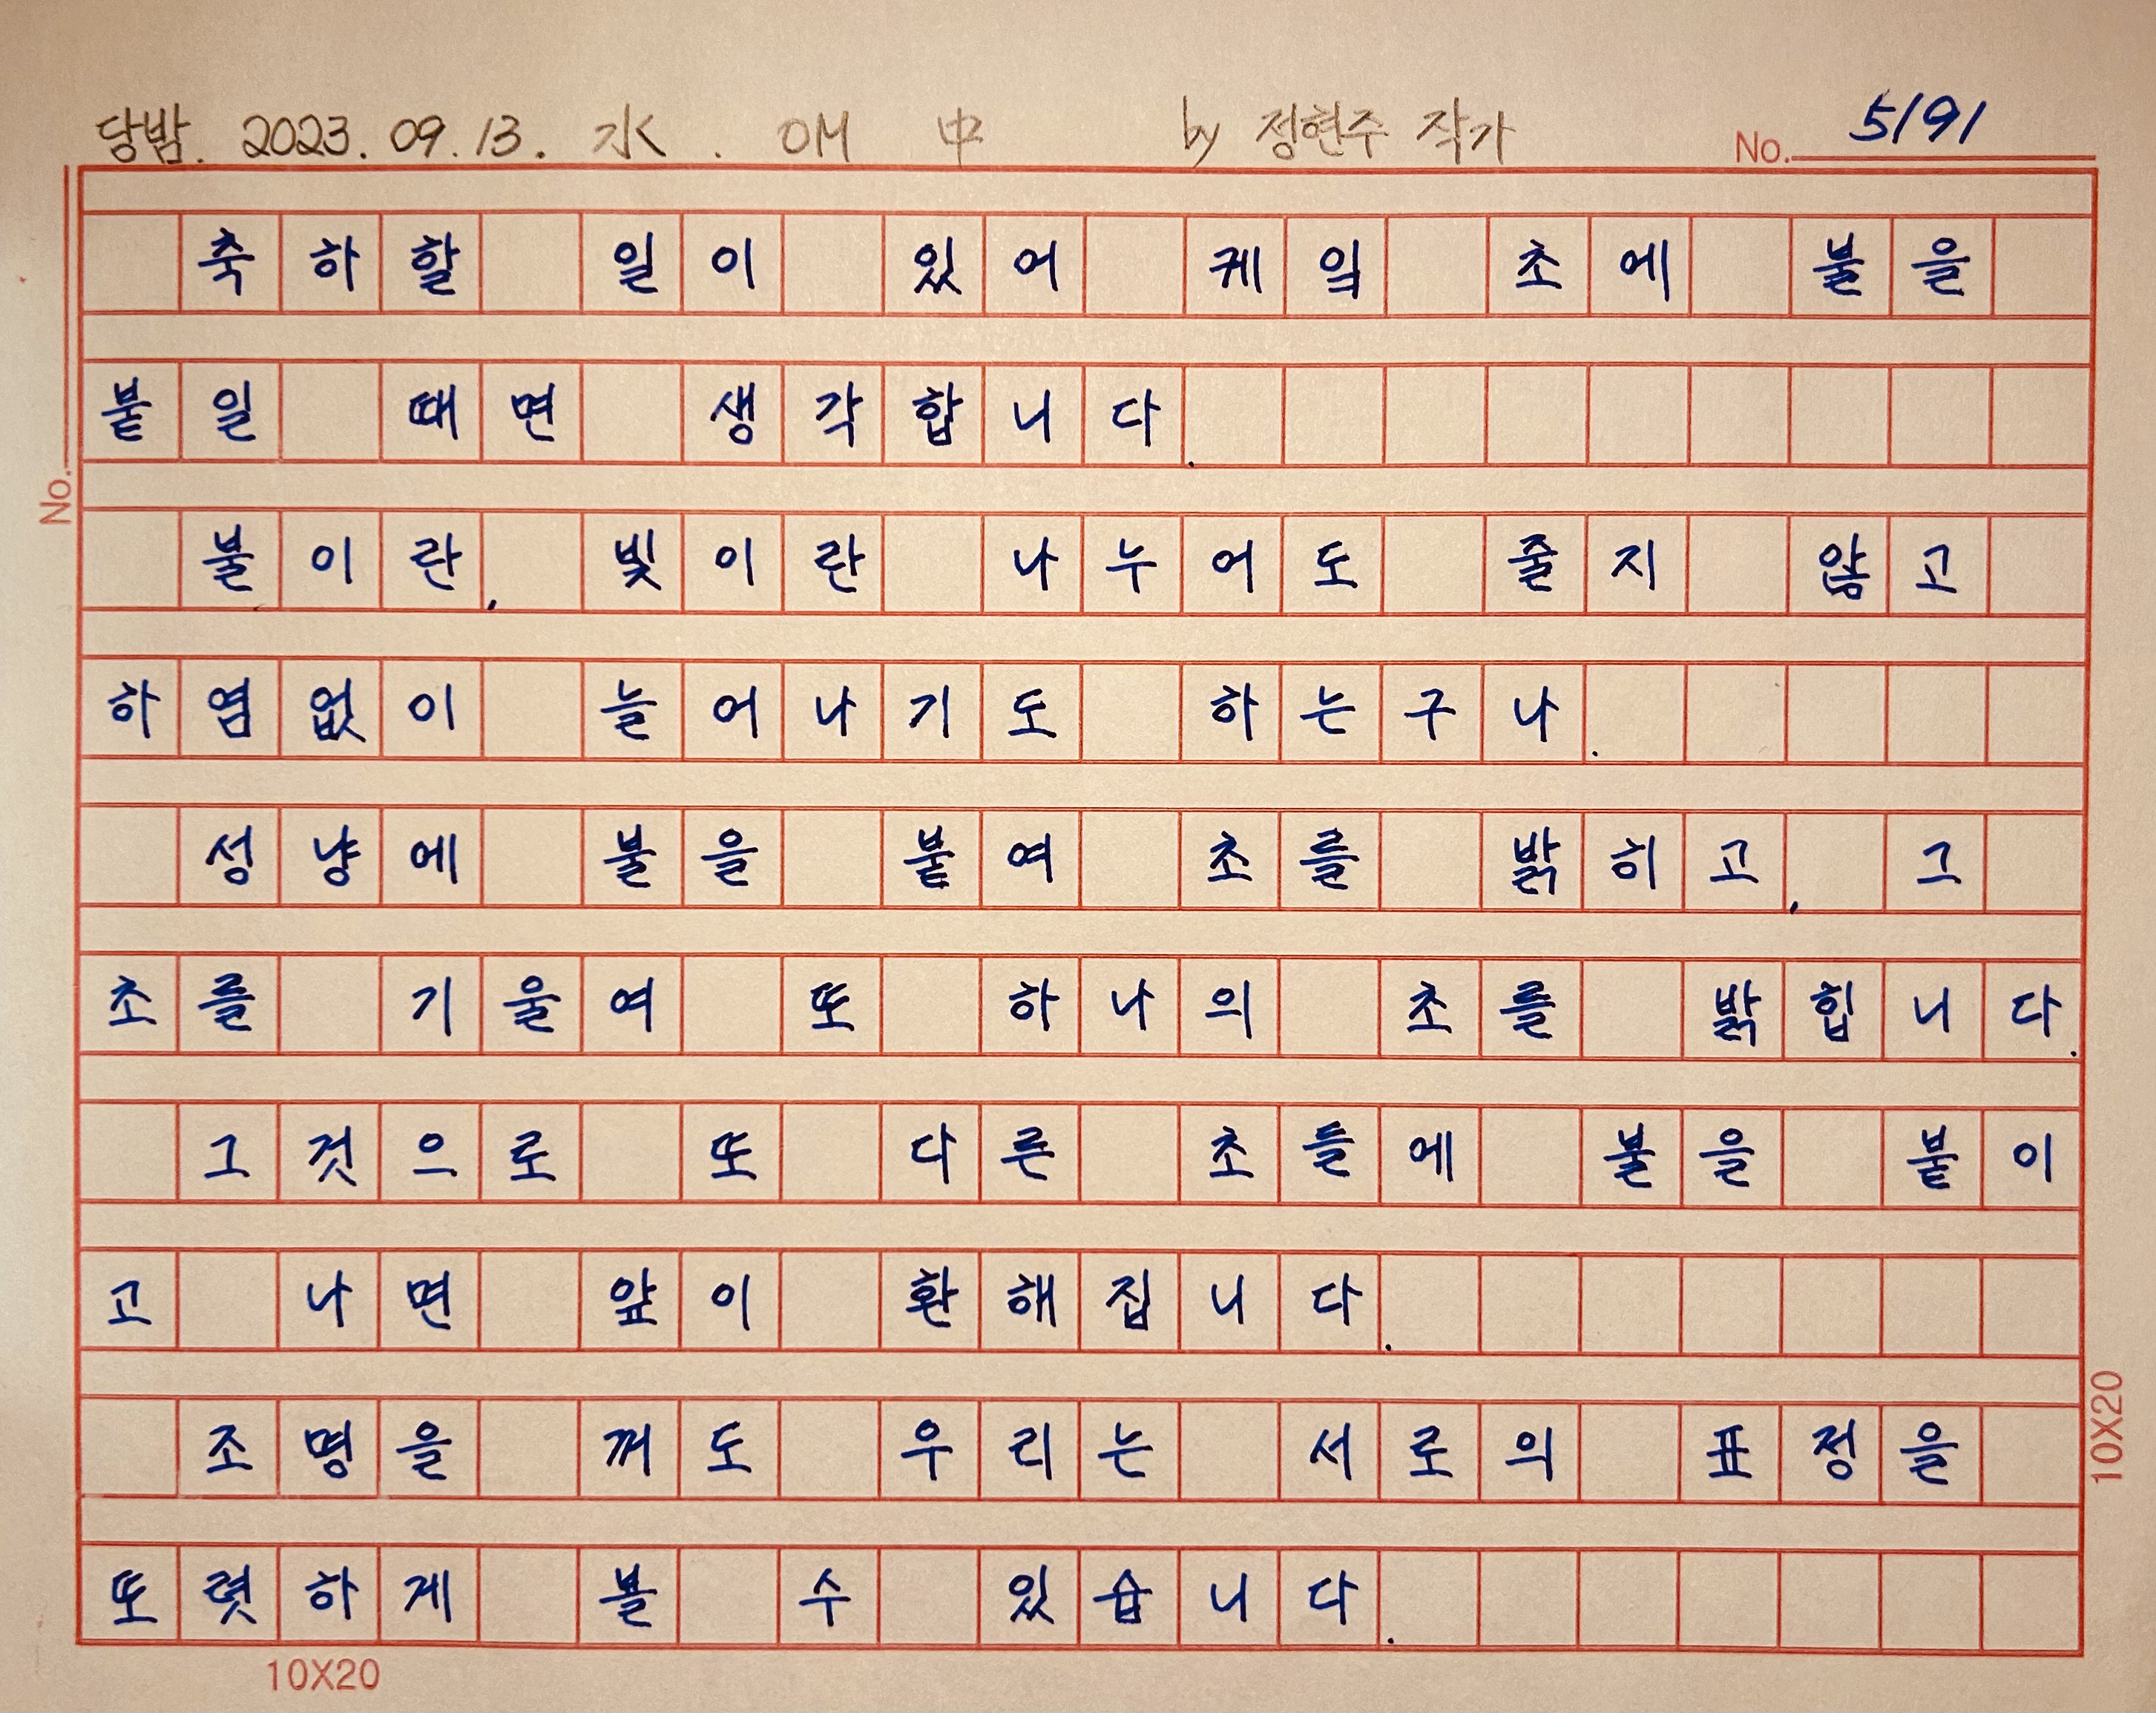 당밤. 2023. 09. 13. 水. OM 中 by 정현주 작가
No. 5191
축하할 일이 있어 케잌 초에 불을
붙일 때면 생각합니다.
불이란, 빛이란 나누어도 줄지 않고
하염없이 늘어나기도 하는구나.
성냥에 불을 붙여 초를 밝히고, 그
초를 기울여 또 하나의 초를 밝힙니다.
그것으로 또 다른 초들에 불을 붙이
고 나면 앞이 환해집니다.
조명을 꺼도 우리는 서로의 표정을
또렷하게 볼 수 있습니다.
No.
10X20
10X20